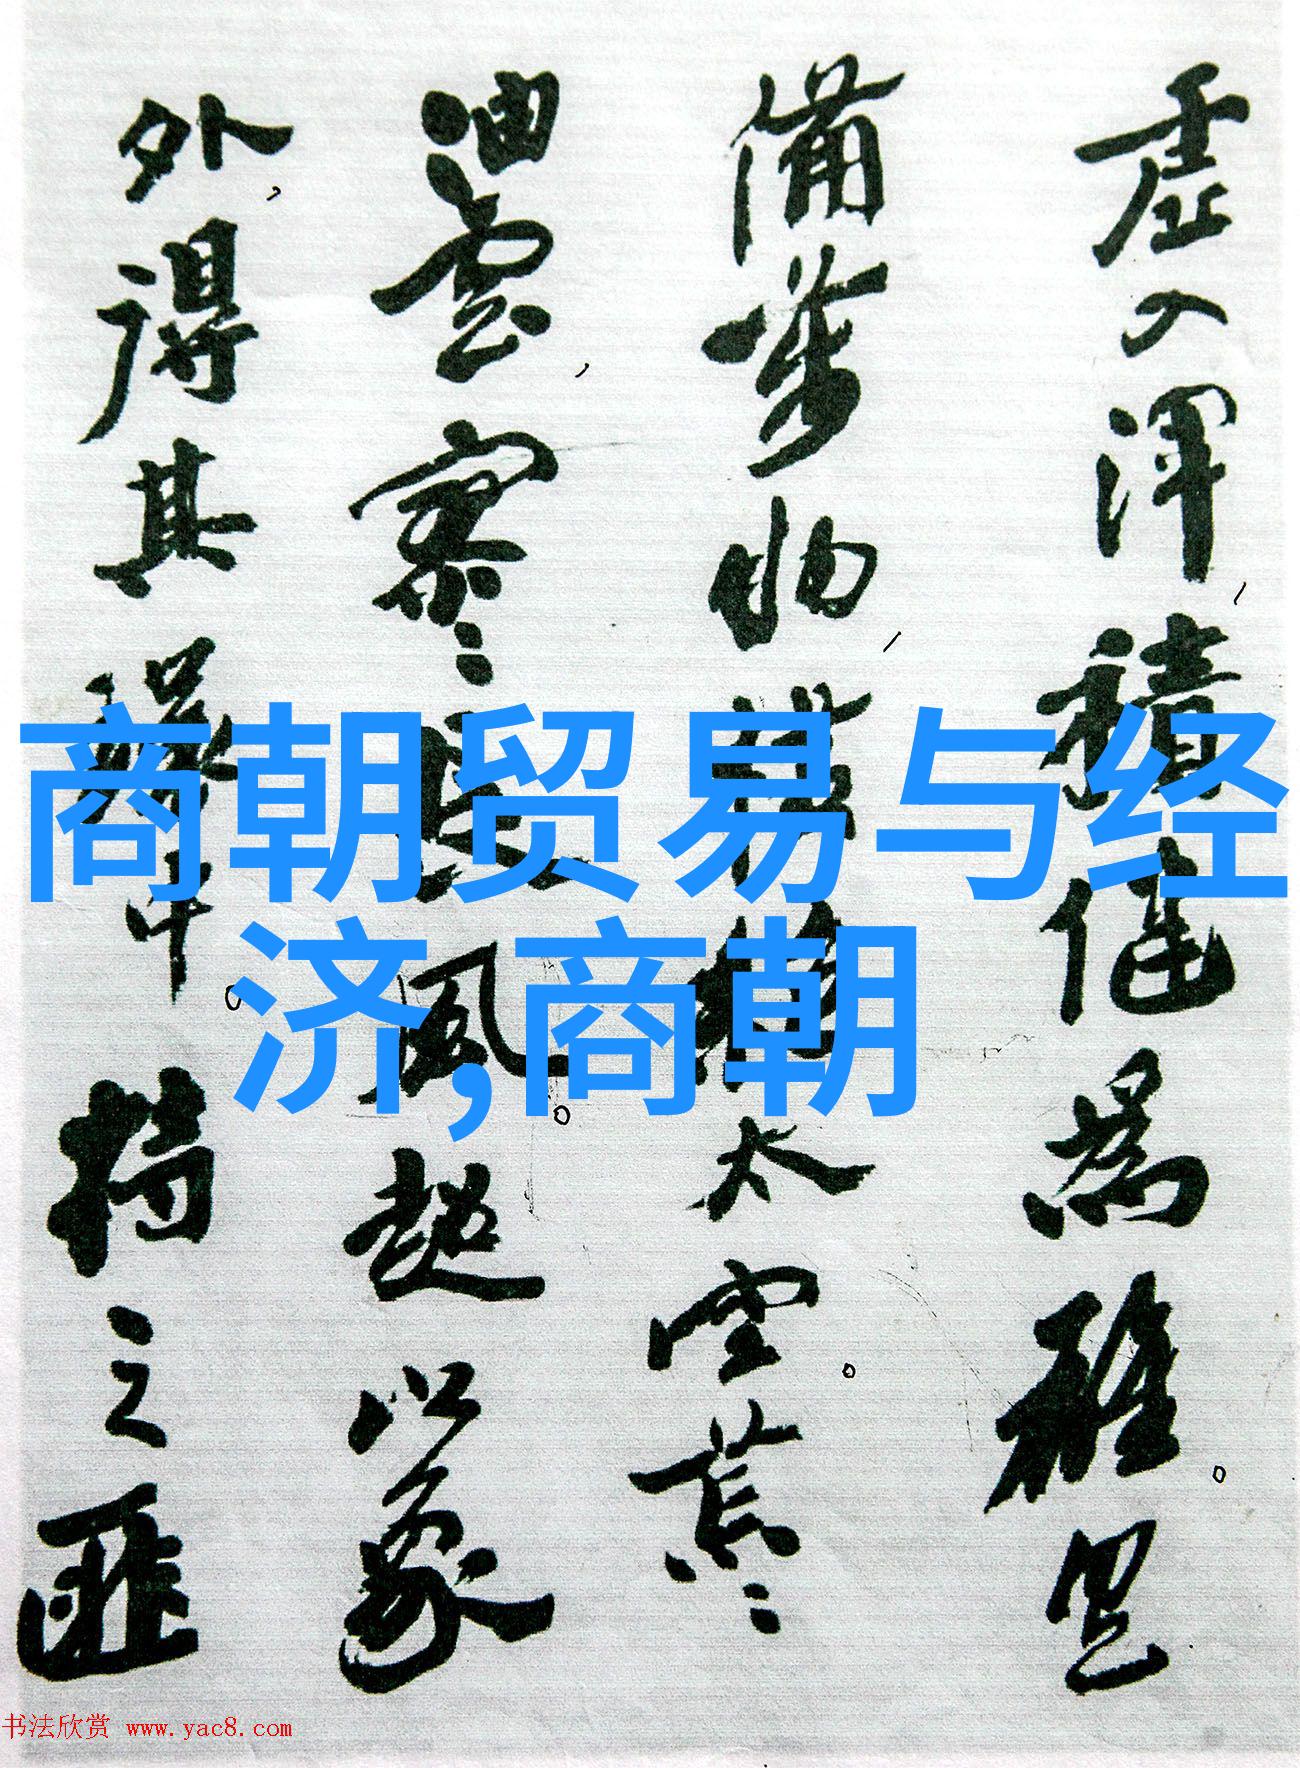 虛入渾，積健為雄。具
備萬物，橫絕太空。荒〻
油雲，寥〻長風。超以象
外，得其環中。持之匪
商朝贸易与经
济,商朝
书法欣赏 www.yac8.com